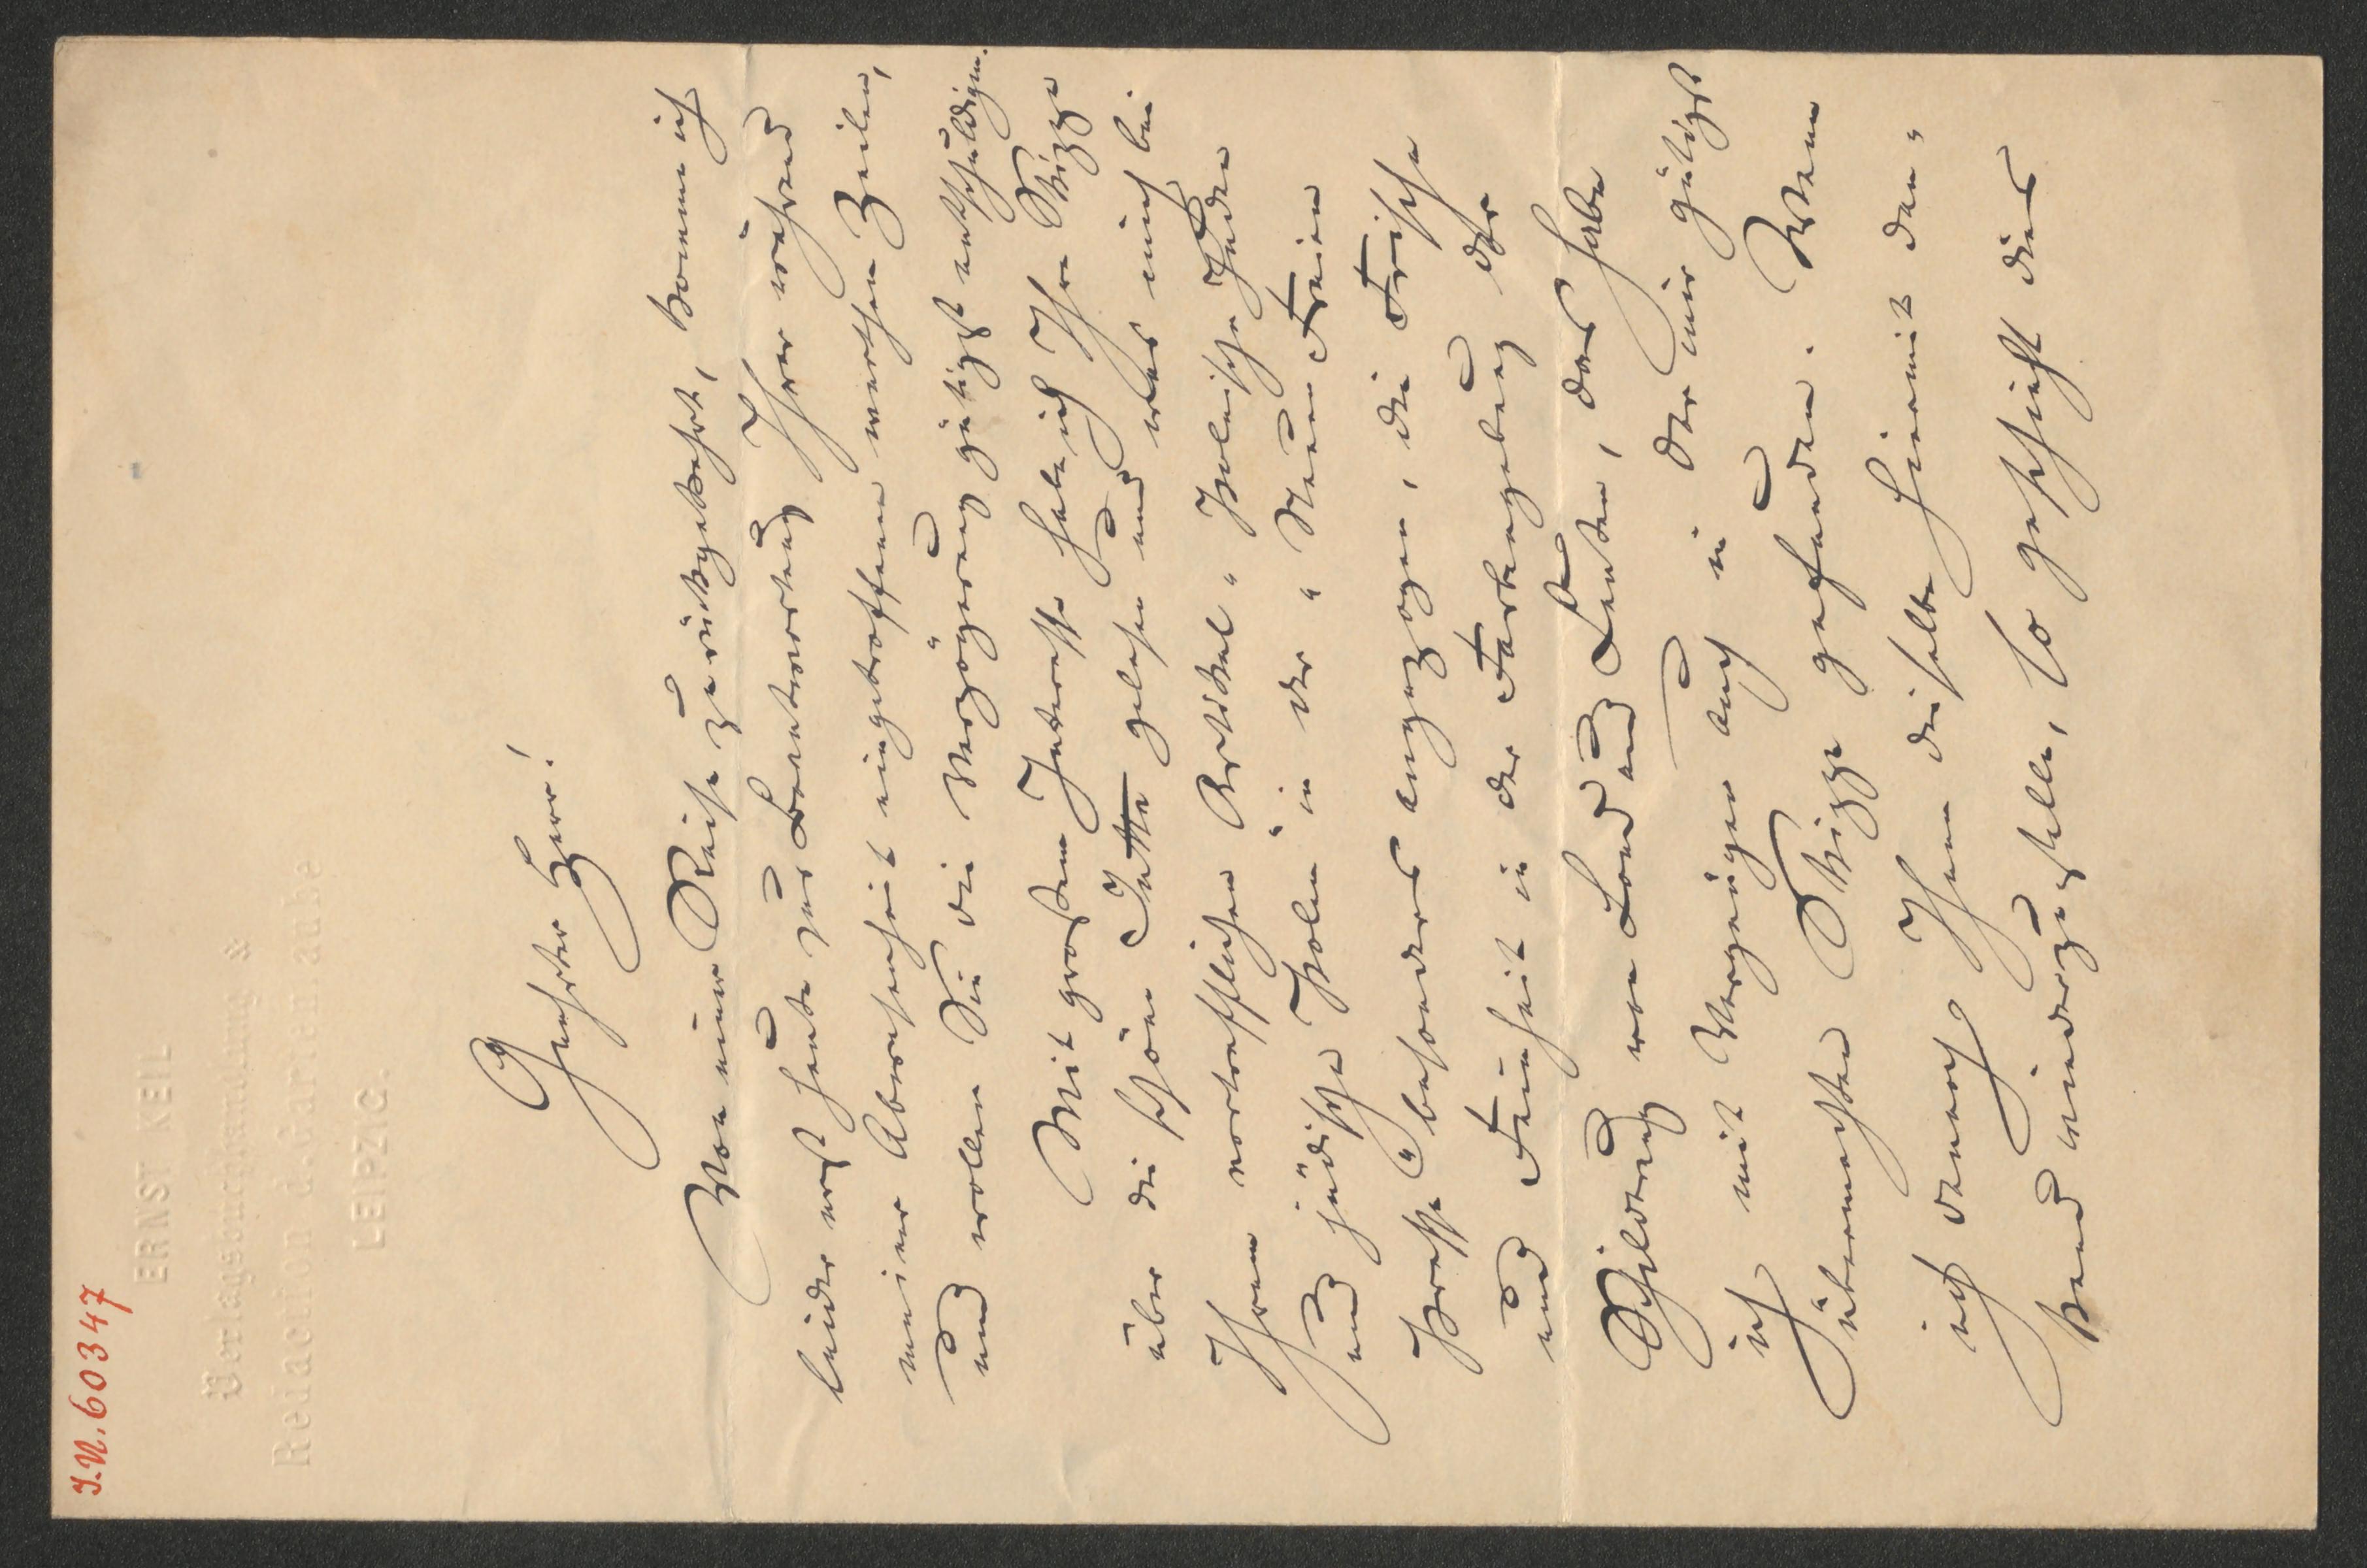 J.N. 60347
ERNST KEIL
Verlagsbuchhandlung &
Redaction d. Gartenlaube
LEIPZIG.
Geehrter Herr!
Von einer Reise zurückgekehrt, komme ich
leider erst heute zur Beantwortung Ihrer während
meiner Abwesenheit eingetroffenen werthen Zeilen,
und wollen Sie die Verzögerung gütigst entschuldigen.
Mit großem Interesse habe ich Ihre Skizze
über die schöne Jette gelesen und was mich bei
Ihrem vortrefflichen Artikel „Polnische Juden
und jüdische Polen" in der „Neuen Freien
Presse" besonders angezogen, die Frische
und Feinheit in der Farbengebung der
Schilderung von Land und Leuten, das habe
ich mit Vergnügen auch in der mir gütigst
übermachten Skizze gefunden. Wenn
ich dennoch Ihnen dieselbe hiermit dan-
kend wiederzustelle, so geschieht dies